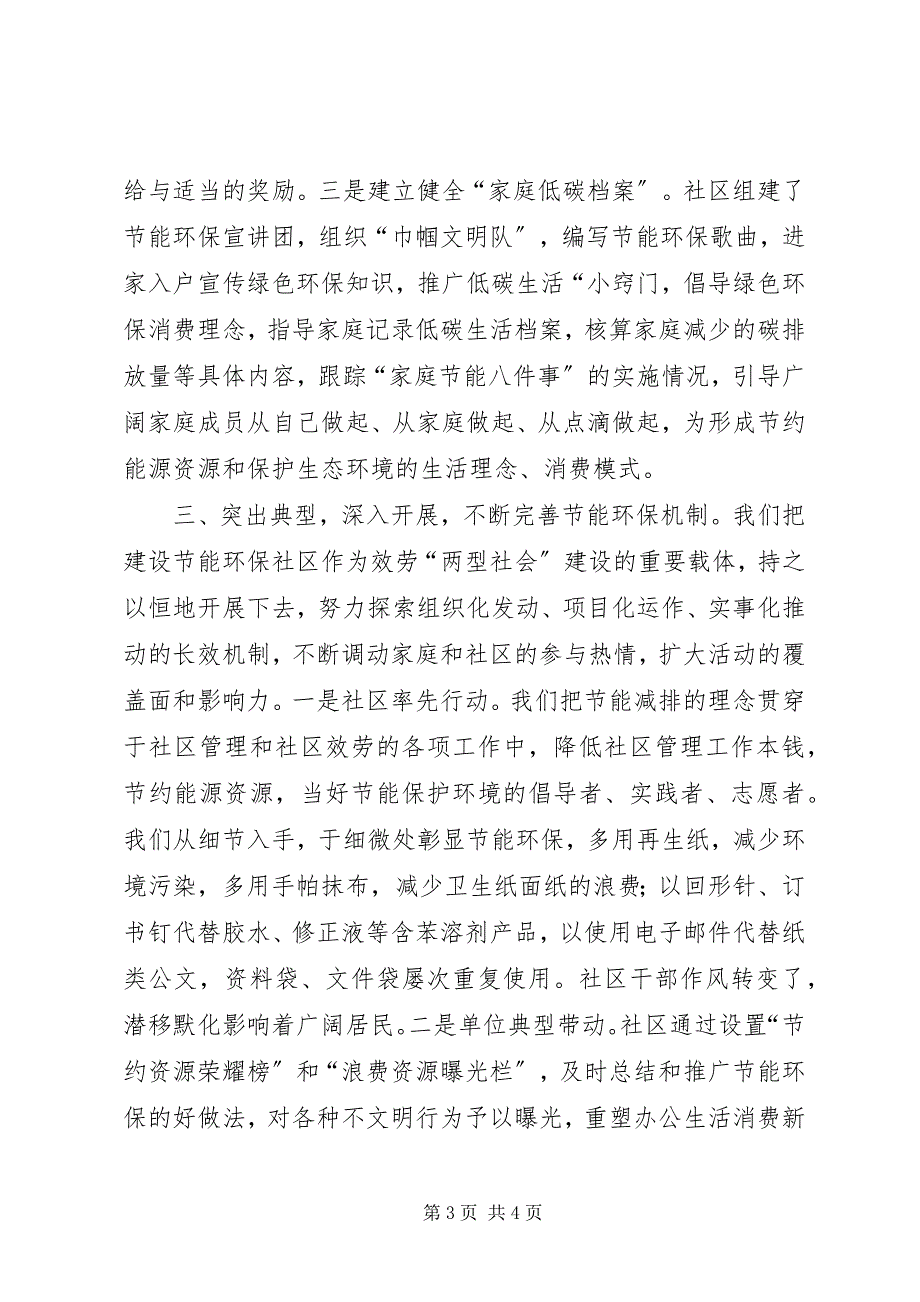 给与适当的奖励。三是建立健全“家庭低碳档案〞。社区组建了
节能环保宣讲团，组织“巾帼文明队〞，编写节能环保歌曲，进
家入户宣传绿色环保知识，推广低碳生活“小窍门，倡导绿色环
保消费理念，指导家庭记录低碳生活档案，核算家庭减少的碳排
放量等具体内容，跟踪“家庭节能八件事〞的实施情况，引导广
阔家庭成员从自己做起、从家庭做起、从点滴做起，为形成节约
能源资源和保护生态环境的生活理念、消费模式。
三、突出典型，深入开展，不断完善节能环保机制。我们把
建设节能环保社区作为效劳“两型社会〞建设的重要载体，持之
以恒地开展下去，努力探索组织化发动、项目化运作、实事化推
动的长效机制，不断调动家庭和社区的参与热情，扩大活动的覆
盖面和影响力。一是社区率先行动。我们把节能减排的理念贯穿
于社区管理和社区效劳的各项工作中，降低社区管理工作本钱，
节约能源资源，当好节能保护环境的倡导者、实践者、志愿者。
我们从细节入手，于细微处彰显节能环保，多用再生纸，减少环
境污染，多用手帕抹布，减少卫生纸面纸的浪费；以回形针、订
书钉代替胶水、修正液等含苯溶剂产品，以使用电子邮件代替纸
类公文，资料袋、文件袋屡次重复使用。社区干部作风转变了，
潜移默化影响着广阔居民。二是单位典型带动。社区通过设置“节
约资源荣耀榜〞和“浪费资源曝光栏〞，及时总结和推广节能环
保的好做法，对各种不文明行为予以曝光，重塑办公生活消费新
第 3 页 共 4 页